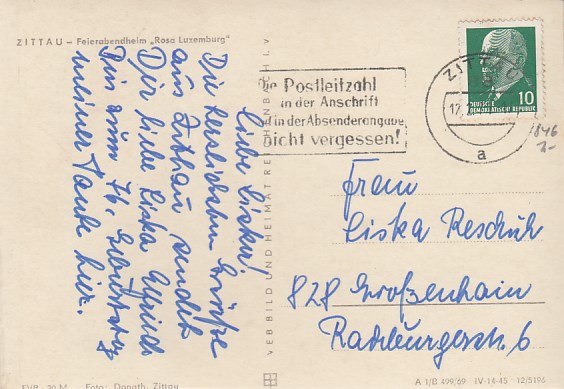 ZITTAU – Feierabendheim „Rosa Luxemburg"
Liebe Liska!
Die herzlichsten Grüße
aus Zittau sendet
Dir liebe Liska
Bin zum 76. Geburtstag
meiner Tante hier.
VEB BILD UND HEIMAT REICHENBACH I. V.
Die Postleitzahl
in der Anschrift
und in der Absenderangabe
nicht vergessen!
ZITTAU
12.
a
10
DEUTSCHE
DEMOKRATISCHE REPUBLIK
1846
Frau
Liska Reschuh
828 Großenhain
Radeburgerstr. 6
EVP -,20 M Foto: Donath, Zittau
A 1/B 499/69 IV-14-45 12/5196